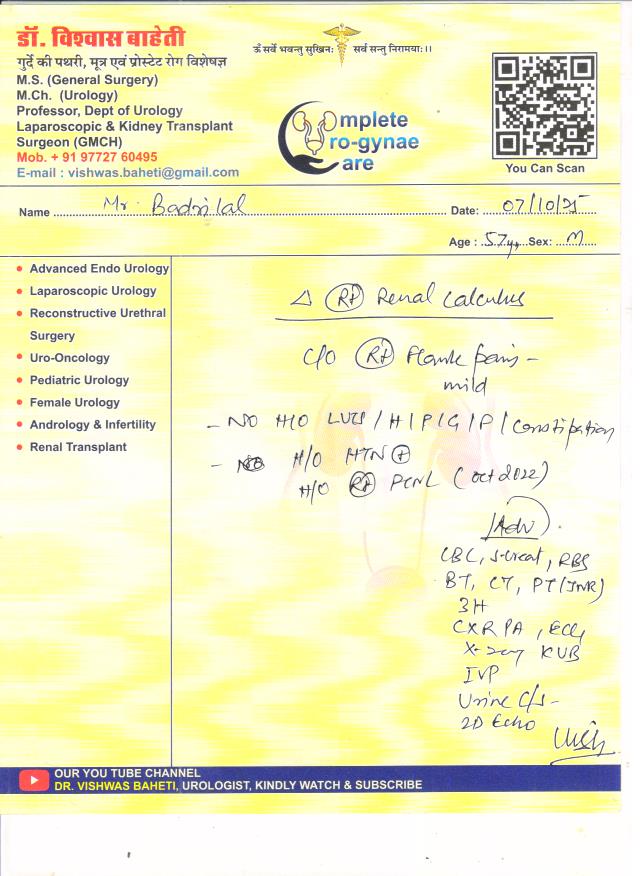 डॉ. विश्वास बाहेती
गुर्दे की पथरी, मूत्र एवं प्रोस्टेट रोग विशेषज्ञ
M.S. (General Surgery)
M.Ch. (Urology)
Professor, Dept of Urology
Laparoscopic & Kidney Transplant
Surgeon (GMCH)
Mob. + 91 97727 60495
E-mail : vishwas.baheti@gmail.com
ॐ सर्वे भवन्तु सुखिनः सर्व सन्तु निरामयाः।।
Complete
Uro-gynae
Care
You Can Scan
Name Mr. Badrilal Date: 07/10/25
Age : 57y Sex: M
Advanced Endo Urology
Laparoscopic Urology
Reconstructive Urethral
Surgery
Uro-Oncology
Pediatric Urology
Female Urology
Andrology & Infertility
Renal Transplant
Δ Rt Renal Calculus
C/O Rt Flank pain -
mild
- NO H/O LUTS / H / P / G / P / Constipation
- H/O HTN +
H/O Rt PCNL (Oct 2022)
Adv
CBC, S.creat, RBS
BT, CT, PT (INR)
3H
CXR PA, ECG,
X-ray KUB
IVP
Urine C/S -
2D Echo
OUR YOU TUBE CHANNEL
DR. VISHWAS BAHETI, UROLOGIST, KINDLY WATCH & SUBSCRIBE